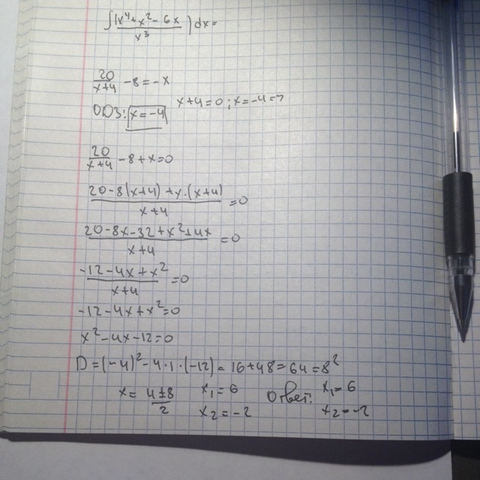 ∫(x⁴+x²-6x / x³) dx=
20/(x+4) -8=-x
ОДЗ: x=-4 x+4=0; x=-4=>
20/(x+4) -8+x=0
(20-8(x+4)+x·(x+4))/(x+4) =0
(20-8x-32+x²+4x)/(x+4) =0
(-12-4x+x²)/(x+4) =0
-12-4x+x²=0
x²-4x-12=0
D=(-4)²-4·1·(-12)=16+48=64=8²
x= (4±8)/2 x₁=6 Ответ: x₁=6
x₂=-2 x₂=-2